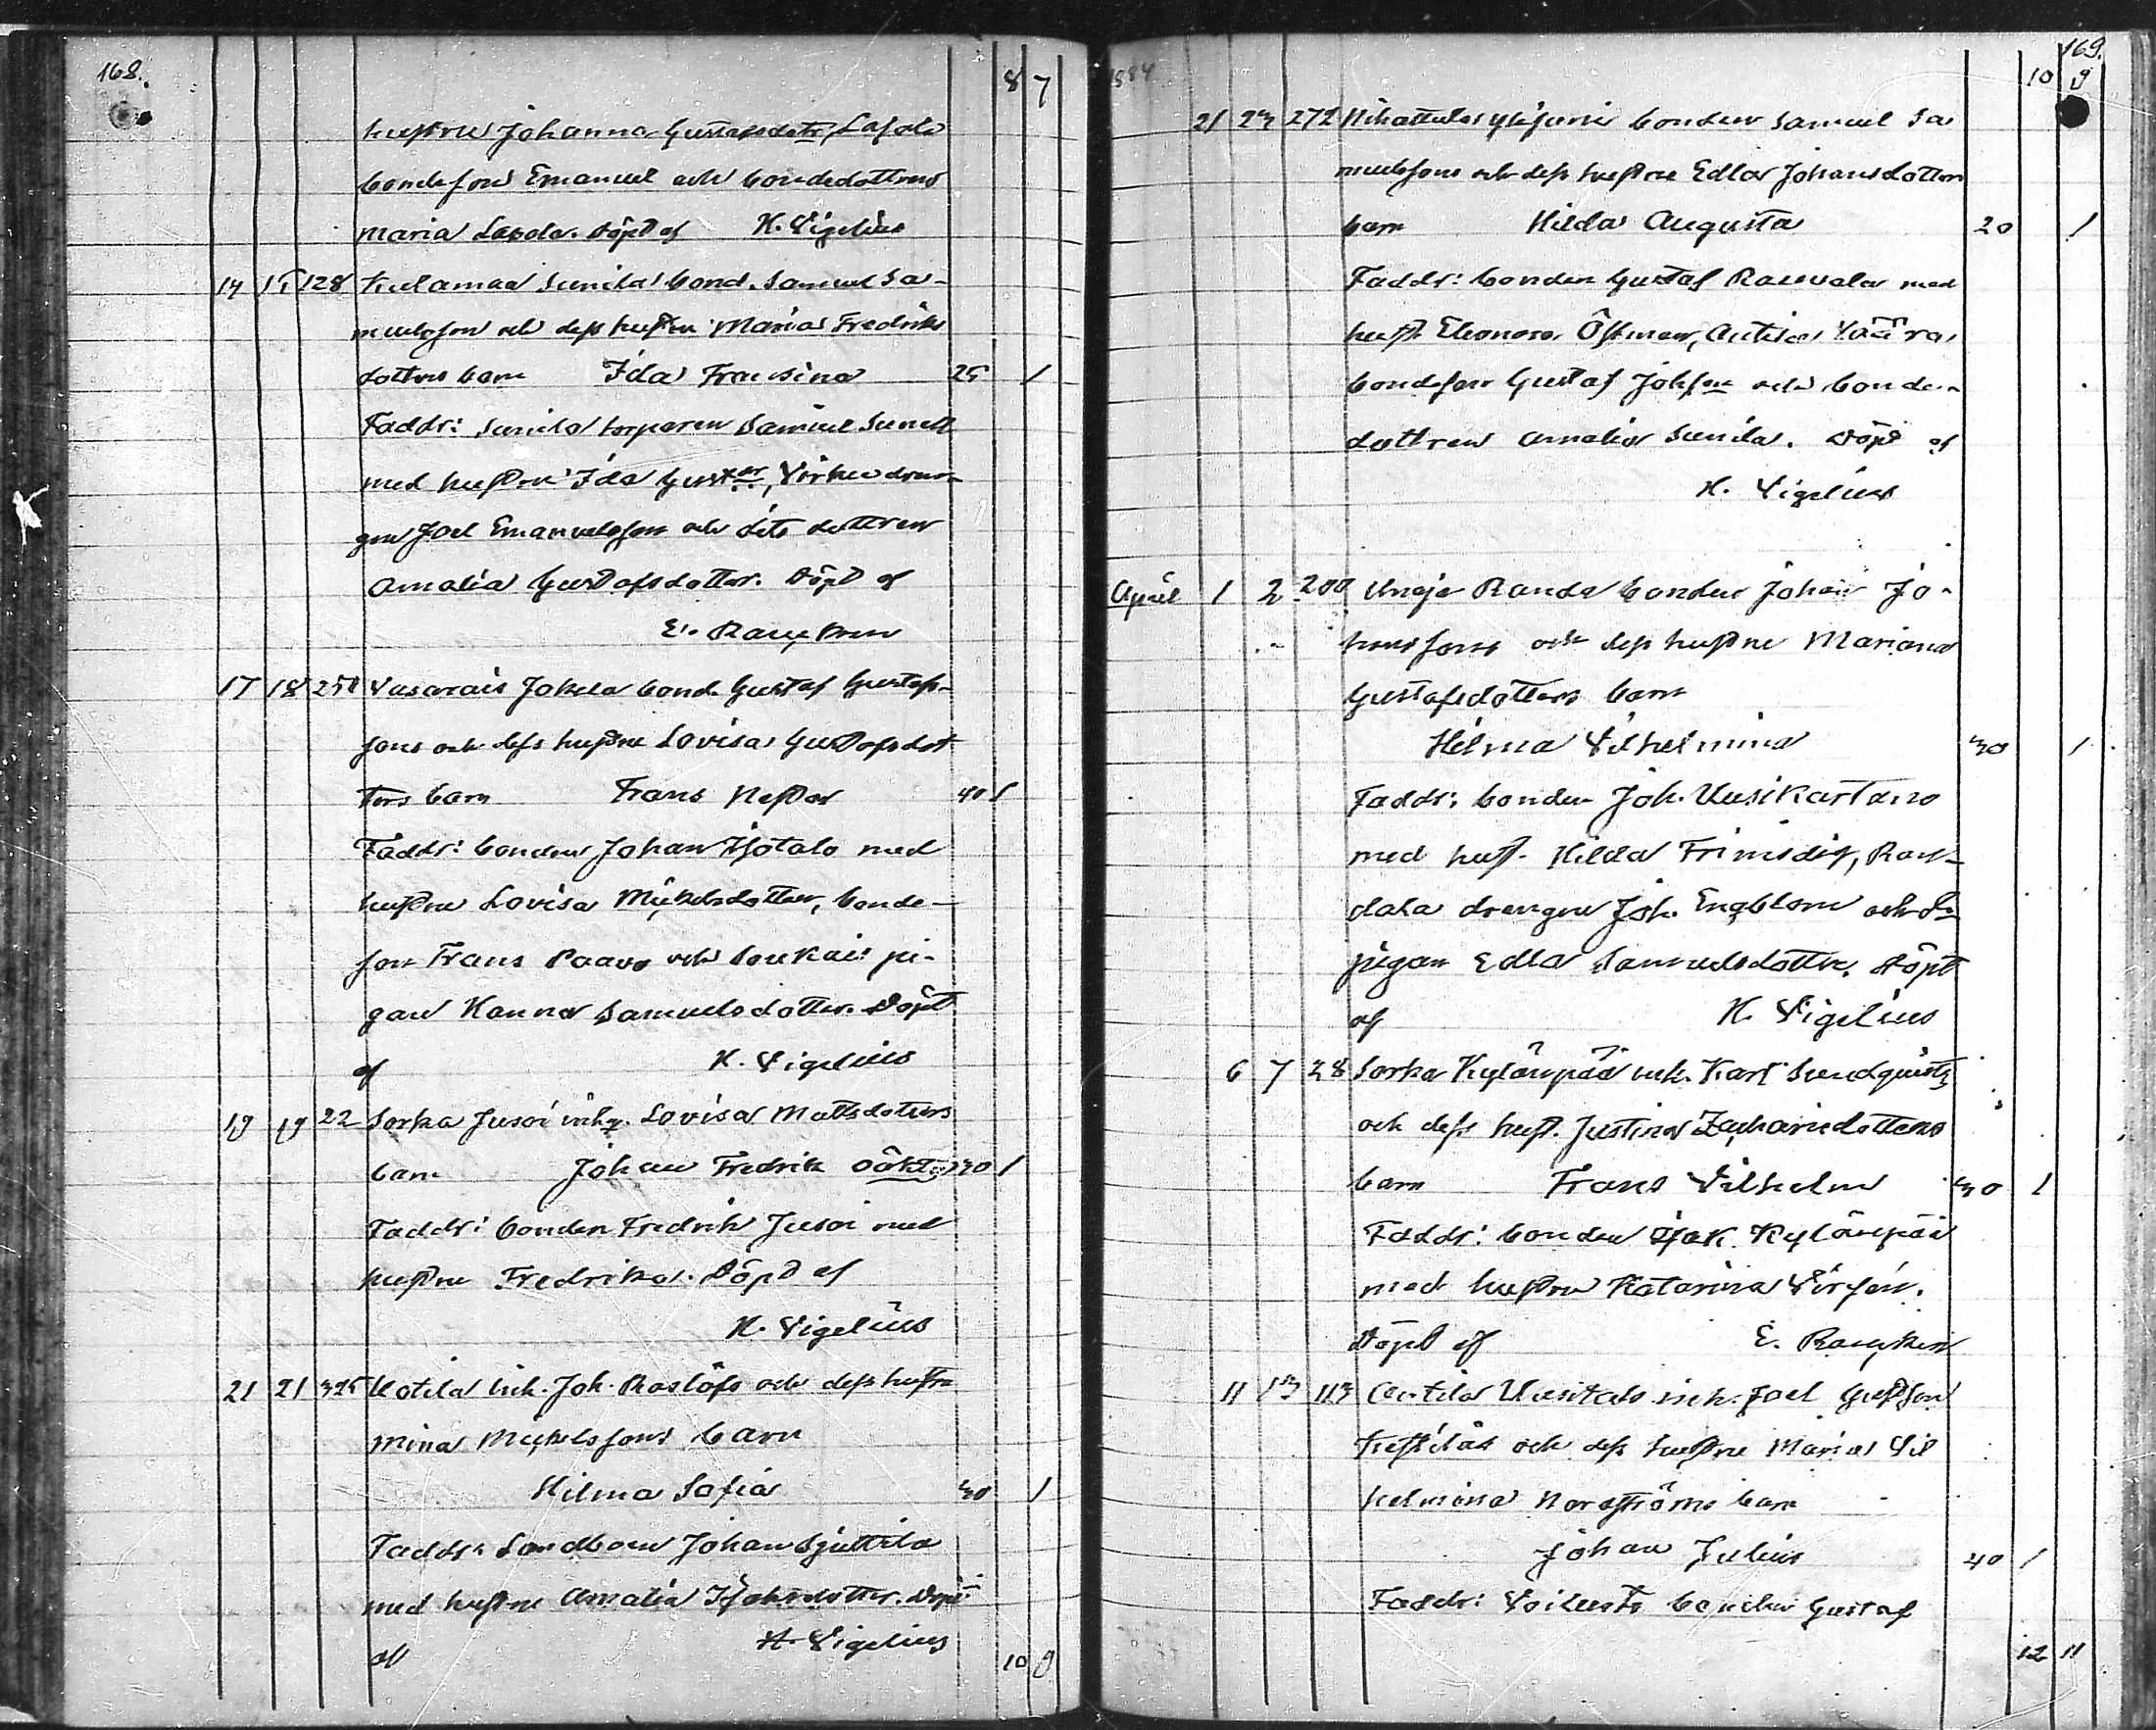 168.
8 7
hustru Johanna Gustafsdotr, Lasola
bondeson Emanuel och bondedottren
Maria Lasola. Döpt af H. Vigelius
14 15 128 Kulamaa Sunila bond. Samuel Sa-
muelsson och dess hustru Maria Fredriks
dotters barn Ida Fransina 25 1
Faddr: Sunila torparen Samuel Sunell
med hustru Ida Gust:dr, drän-
gen Joel Emanuelsson och dito dottren
Amalia Gustafsdotter. Döpt af
E.
17 18 250 Vasarais Jokela bond. Gustaf Gustafs-
sons och dess hustru Lovisa Gustafsdot
ters barn Frans Nestor 40 1
Faddr: bonden Johan Isotalo med
hustru Lovisa Mickelsdotter, bonde-
son Frans Paavo och pi-
gan Hanna Samuelsdotter. Döpt
af H. Vigelius
19 19 22 Sorka Jusoi inhq. Lovisa Mattsdotters
barn Johan Fredrik oäkta 30 1
Faddr: bonden Fredrik Jusoi med
hustru Fredrika. Döpt af
H. Vigelius
21 21 325 Kotila inh. Joh. Roslöfs och dess hustru
Mina Mickelssons barn
Hilma Sofia 30 1
Faddr: Landbon Johan
med hustru Amalia Isaksdotter. Döpt
af H. Vigelius
10 9
1884
169.
10 9
21 23 272 bonden Samuel Sa
muelssons och dess hustru Edla Johansdotters
barn Hilda Augusta 20 1
Faddr: bonden Gustaf Rauvala med
hust. Eleonora Östman, Autila Väära
bondeson Gustaf Johsson och bonde-
dottren Amalia Sunila. Döpt af
H. Vigelius
April 1 2 200 Unaja Randa bonden Johan Jo-
hanssons och dess hustru Mariana
Gustafsdotters barn
Hilma Vilhelmina 30 1
Faddr: bonden Joh. Uusikartano
med hust. Hilda
drengen Joh. Engblom och
pigan Edla Samuelsdotter. Döpt
af H. Vigelius
6 7 28 Sorka Kylänpää inh. Karl Sundqvists
och dess hust. Justina Zachariedotters
barn Frans Vilhelm 30 1
Faddr: bonden Isak Kylänpää
med hustru Katarina
Döpt af E.
11 13 113 Autila Uusitalo inh. Joel Gustsson
och dess hustru Maria Vil
helmina Norströms barn
Johan Julius 40 1
Faddr: Voiluoto bonden Gustaf
12 11